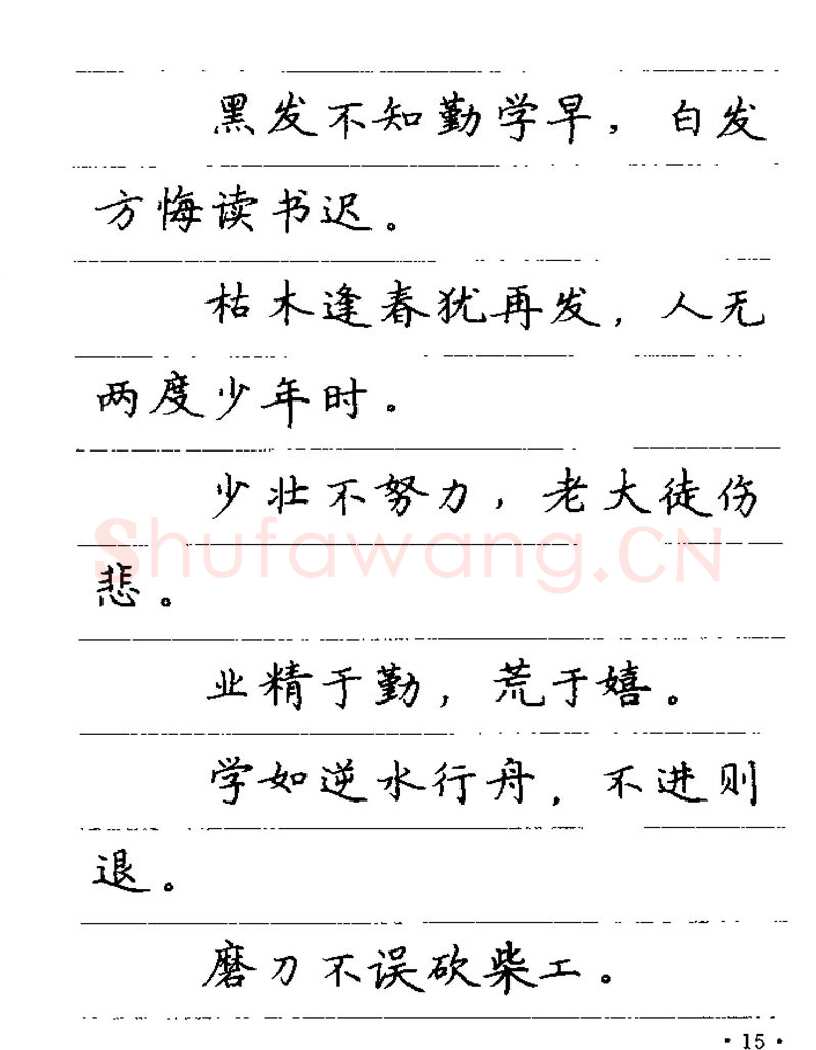 黑发不知勤学早，白发
方悔读书迟。
枯木逢春犹再发，人无
两度少年时。
少壮不努力，老大徒伤
Shufawang.CN
悲。
业精于勤，荒于嬉。
学如逆水行舟，不进则
退。
磨刀不误砍柴工。
·15·